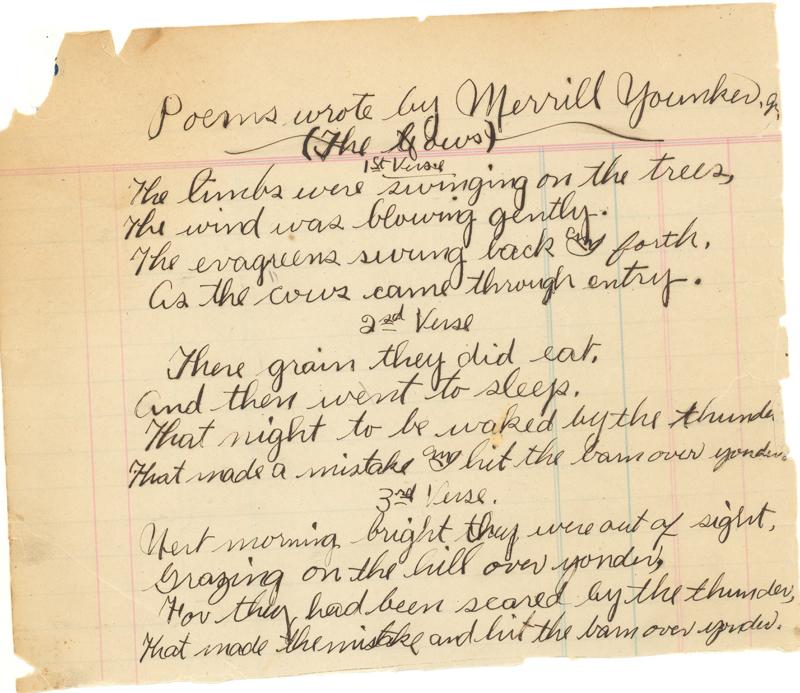 Poems wrote by Merrill Younker, Jr.
(The Cows)
1st Verse
The limbs were swinging on the trees,
The wind was blowing gently.
The evagreens swung back and forth.
As the cows came through entry.
2nd Verse
There grain they did eat.
And then went to sleep.
That night to be waked by the thunder
That made a mistake and hit the barn over yonder.
3rd Verse.
Next morning bright they were out of sight,
Grazing on the hill over yonder,
For they had been scared by the thunder,
That made the mistake and hit the barn over yonder.